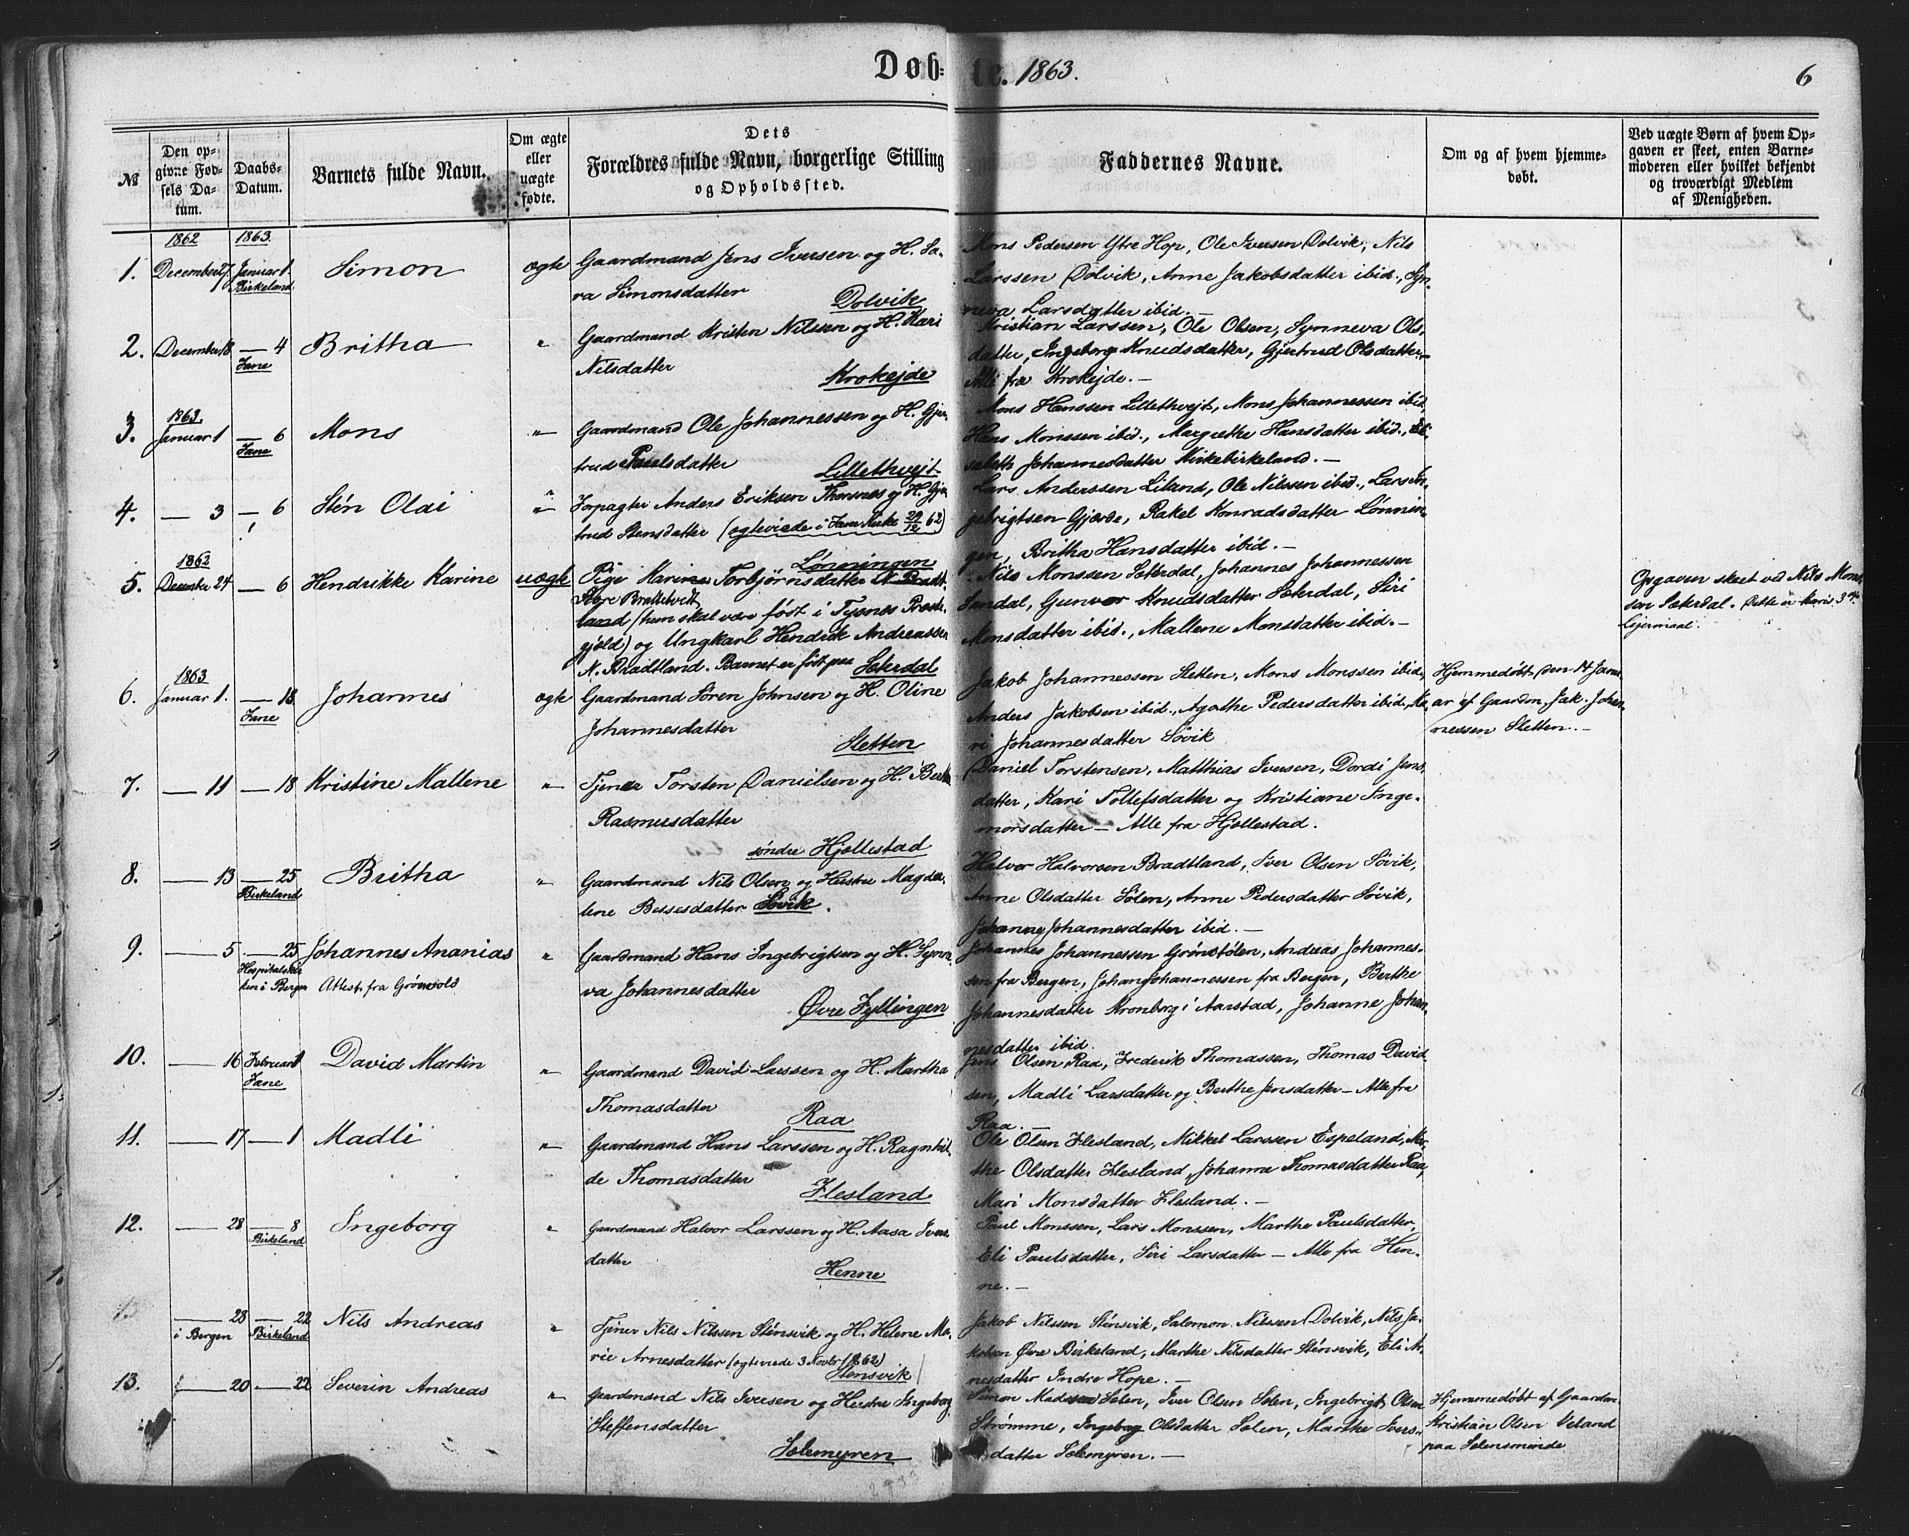 Døbte. 1863.
6
№
Den opgivne Fødsels Datum.
Daabs-Datum.
Barnets fulde Navn.
Om ægte eller uægte fødte.
Dets Forældres fulde Navn, borgerlige Stilling og Opholdssted.
Faddernes Navne.
Om og af hvem hjemmedøbt.
Ved uægte Børn af hvem Opgaven er skeet, enten Barnemoderen eller hvilket bekjendt og troværdigt Medlem af Menigheden.
1862 1863.
1. December 27 Januar 1. Birkeland Simon ægte
Gaardmand Jens Iversen og H. Sa-
ra Simonsdatter Dolvik
Mons Pedersen Ytre Hop, Ole Iversen Dolvik, Nils
Larssen Dolvik, Anne Jakobsdatter ibid., Syn-
neva Larsdatter ibid.—
2. December 18 — 4 Fane Britha "
Gaardmand Kristen Nilssen og H. Kari
Nilsdatter Krokejde
Kristian Larssen, Ole Olsen, Synneva Ols-
datter, Ingeborg Knudsdatter, Gjertrud Olsdatter—
Alle fra Krokejde.—
1863.
3. Januar 1 — 6 Fane Mons "
Gaardmand Ole Johannessen og H. Gjer-
trud Paulsdatter Lillethvejt
Mons Hanssen Lillethvejt, Mons Johannessen ibid.
Hans Monssen ibid., Margrethe Hansdatter ibid., Eli-
sabeth Johannesdatter Kirkebirkeland.—
4. — 3 — 6 Stén Olai "
Forpagter Anders Eriksen Thorsnes og H. Gjer-
trud Stensdatter (ægteviede i Fane Kirke 29/12 62)
Lønningen
Lars Anderssen Liland, Ole Nilssen ibid., Lars In-
gebrigtsen Gjerde, Rakel Konradsdatter Lønnin-
gen, Britha Hansdatter ibid.—
1862
5. December 24 — 6 Hendrikke Karine uægte
Pige Karine Torbjørnsdatter N. Bradt-
land (hun skal være født i Tysnes Præste-
gjæld) og Ungkarl Hendrik Andreassen
N. Bradtland. Barnet er født paa Sæterdal
Nils Monssen Sæterdal, Johannes Johannessen
Sandal, Gunvor Knudsdatter Sæterdal, Siri
Monsdatter ibid., Mallene Monsdatter ibid.—
Opgaven skeet ved Nils Mons-
sen Sæterdal. Dette er Karis 3die
Lejermaal.
1863
6. Januar 1. — 18 Fane Johannes ægte
Gaardmand Søren Johnsen og H. Oline
Johannesdatter Sletten
Jakob Johannessen Sletten, Mons Monssen ibid.,
Anders Jakobsen ibid., Agathe Pedersdatter ibid., Ka-
ri Johannesdatter Søvik
Hjemmedøbt den 14 Janu-
ar af Gaardm. Jak. Johan-
nessen Sletten.—
7. — 11 — 18 Kristine Mallene "
Tjener Torsten Danielsen og H. Berthe
Rasmusdatter
søndre Hjellestad
Daniel Torstensen, Matthias Iversen, Dordi Jens-
datter, Kari Tollefsdatter og Kristiane Inge-
morsdatter — Alle fra Hjellestad.
8. — 13 — 25 Birkeland Britha "
Gaardmand Nils Olsen og Hustru Magda-
lene Bessesdatter Søvik.
Halvor Halvorsen Bradtland, Iver Olsen Søvik,
Anne Olsdatter Sølen, Anne Pedersdatter Søvik,
Johanne Johannesdatter ibid.—
9. — 5 — 25 Hospitalskir-
ken i Bergen Johannes Ananias "
Attest. fra Grønvold
Gaardmand Hans Ingebrigtsen og H. Synne-
va Johannesdatter
Øvre Fyllingen
Johannes Johannessen Grønstølen, Andreas Johannes-
sen fra Bergen, Johan Johannessen fra Bergen, Berthe
Johannesdatter Kronborg i Aarstad, Johanne Johan-
nesdatter ibid.
10. — 16 Februar 1 Fane David Martin "
Gaardmand David Larssen og H. Martha
Thomasdatter Raa
Jens Olsen Raa, Frederik Thomassen, Thomas David-
sen, Madli Larsdatter og Berthe Jensdatter — Alle fra
Raa.—
11. — 17 — 1 Madli "
Gaardmand Hans Larssen og H. Ragnhil-
de Thomasdatter Flesland
Ole Olsen Flesland, Mikkel Larssen Espeland, Mar-
the Olsdatter Flesland, Johanna Thomasdatter Raa,
Mari Monsdatter Flesland.—
12. — 28 — 8 Birkeland Ingeborg "
Gaardmand Halvor Larssen og H. Aasa Ivers-
datter Henne
Paul Monssen, Lars Monssen, Marthe Paulsdatter,
Eli Paulsdatter, Siri Larsdatter — Alle fra Hen-
ne.—
13 — 28 i Bergen — 22 Birkeland Nils Andreas "
Tjener Nils Nilssen Stensvik og H. Helene Ma-
rie Arnesdatter (ægteviede 3 Novbr 1862)
Stensvik
Jakob Nilssen Stensvik, Salomon Nilssen Dolvik, Nils Ja-
kobsen Øvre Birkeland, Marthe Nilsdatter Stensvik, Eli Ar-
nesdatter Indre Hope.—
13. — 20 — 22 Severin Andreas "
Gaardmand Nils Iversen og Hustru Ingeborg
Steffensdatter
Sølemyren
Simon Madssen Sølen, Iver Olsen Sølen, Ingebrigt Olsen
Strømme, Ingeborg Olsdatter Sølen, Marthe Ivers-
datter Sølemyren.—
Hjemmedøbt af Gaardm.
Kristian Olsen Veland
paa Sølensminde